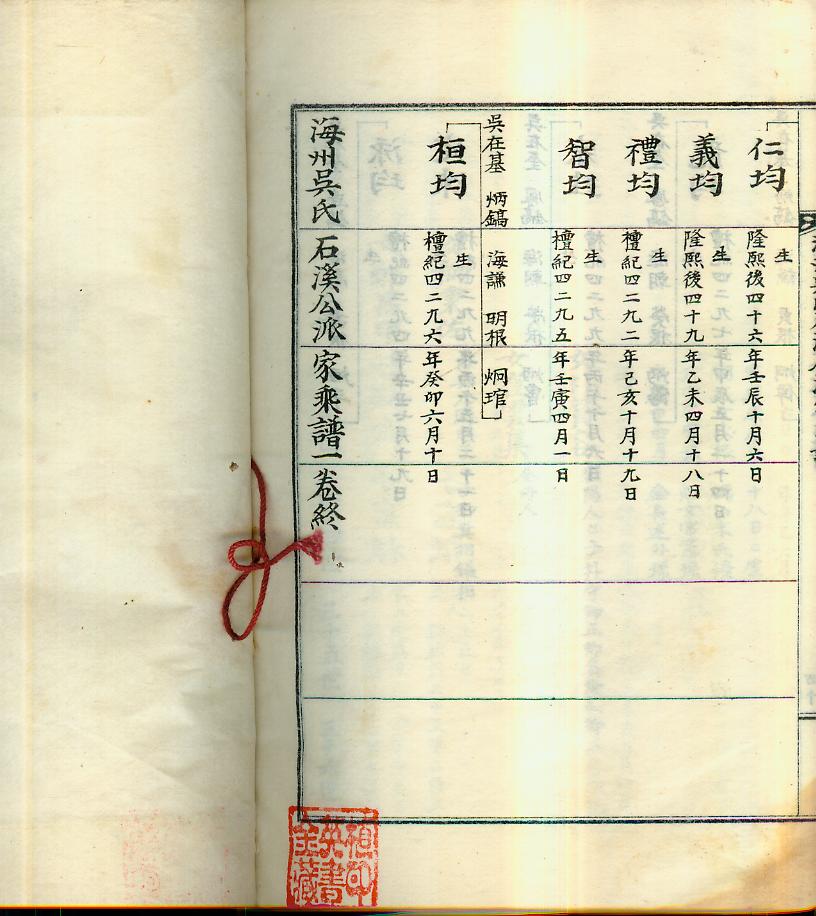 仁均
生
隆熙後四十六年壬辰十月六日
義均
生
隆熙後四十九年乙未四月十八日
禮均
生
檀紀四二九二年己亥十月十九日
智均
生
檀紀四二九五年壬寅四月一日
吳在基 炳鎬 海謙 明根 炯琯
桓均
生
檀紀四二九六年癸卯六月十日
海州吳氏石溪公派家乘譜一卷終